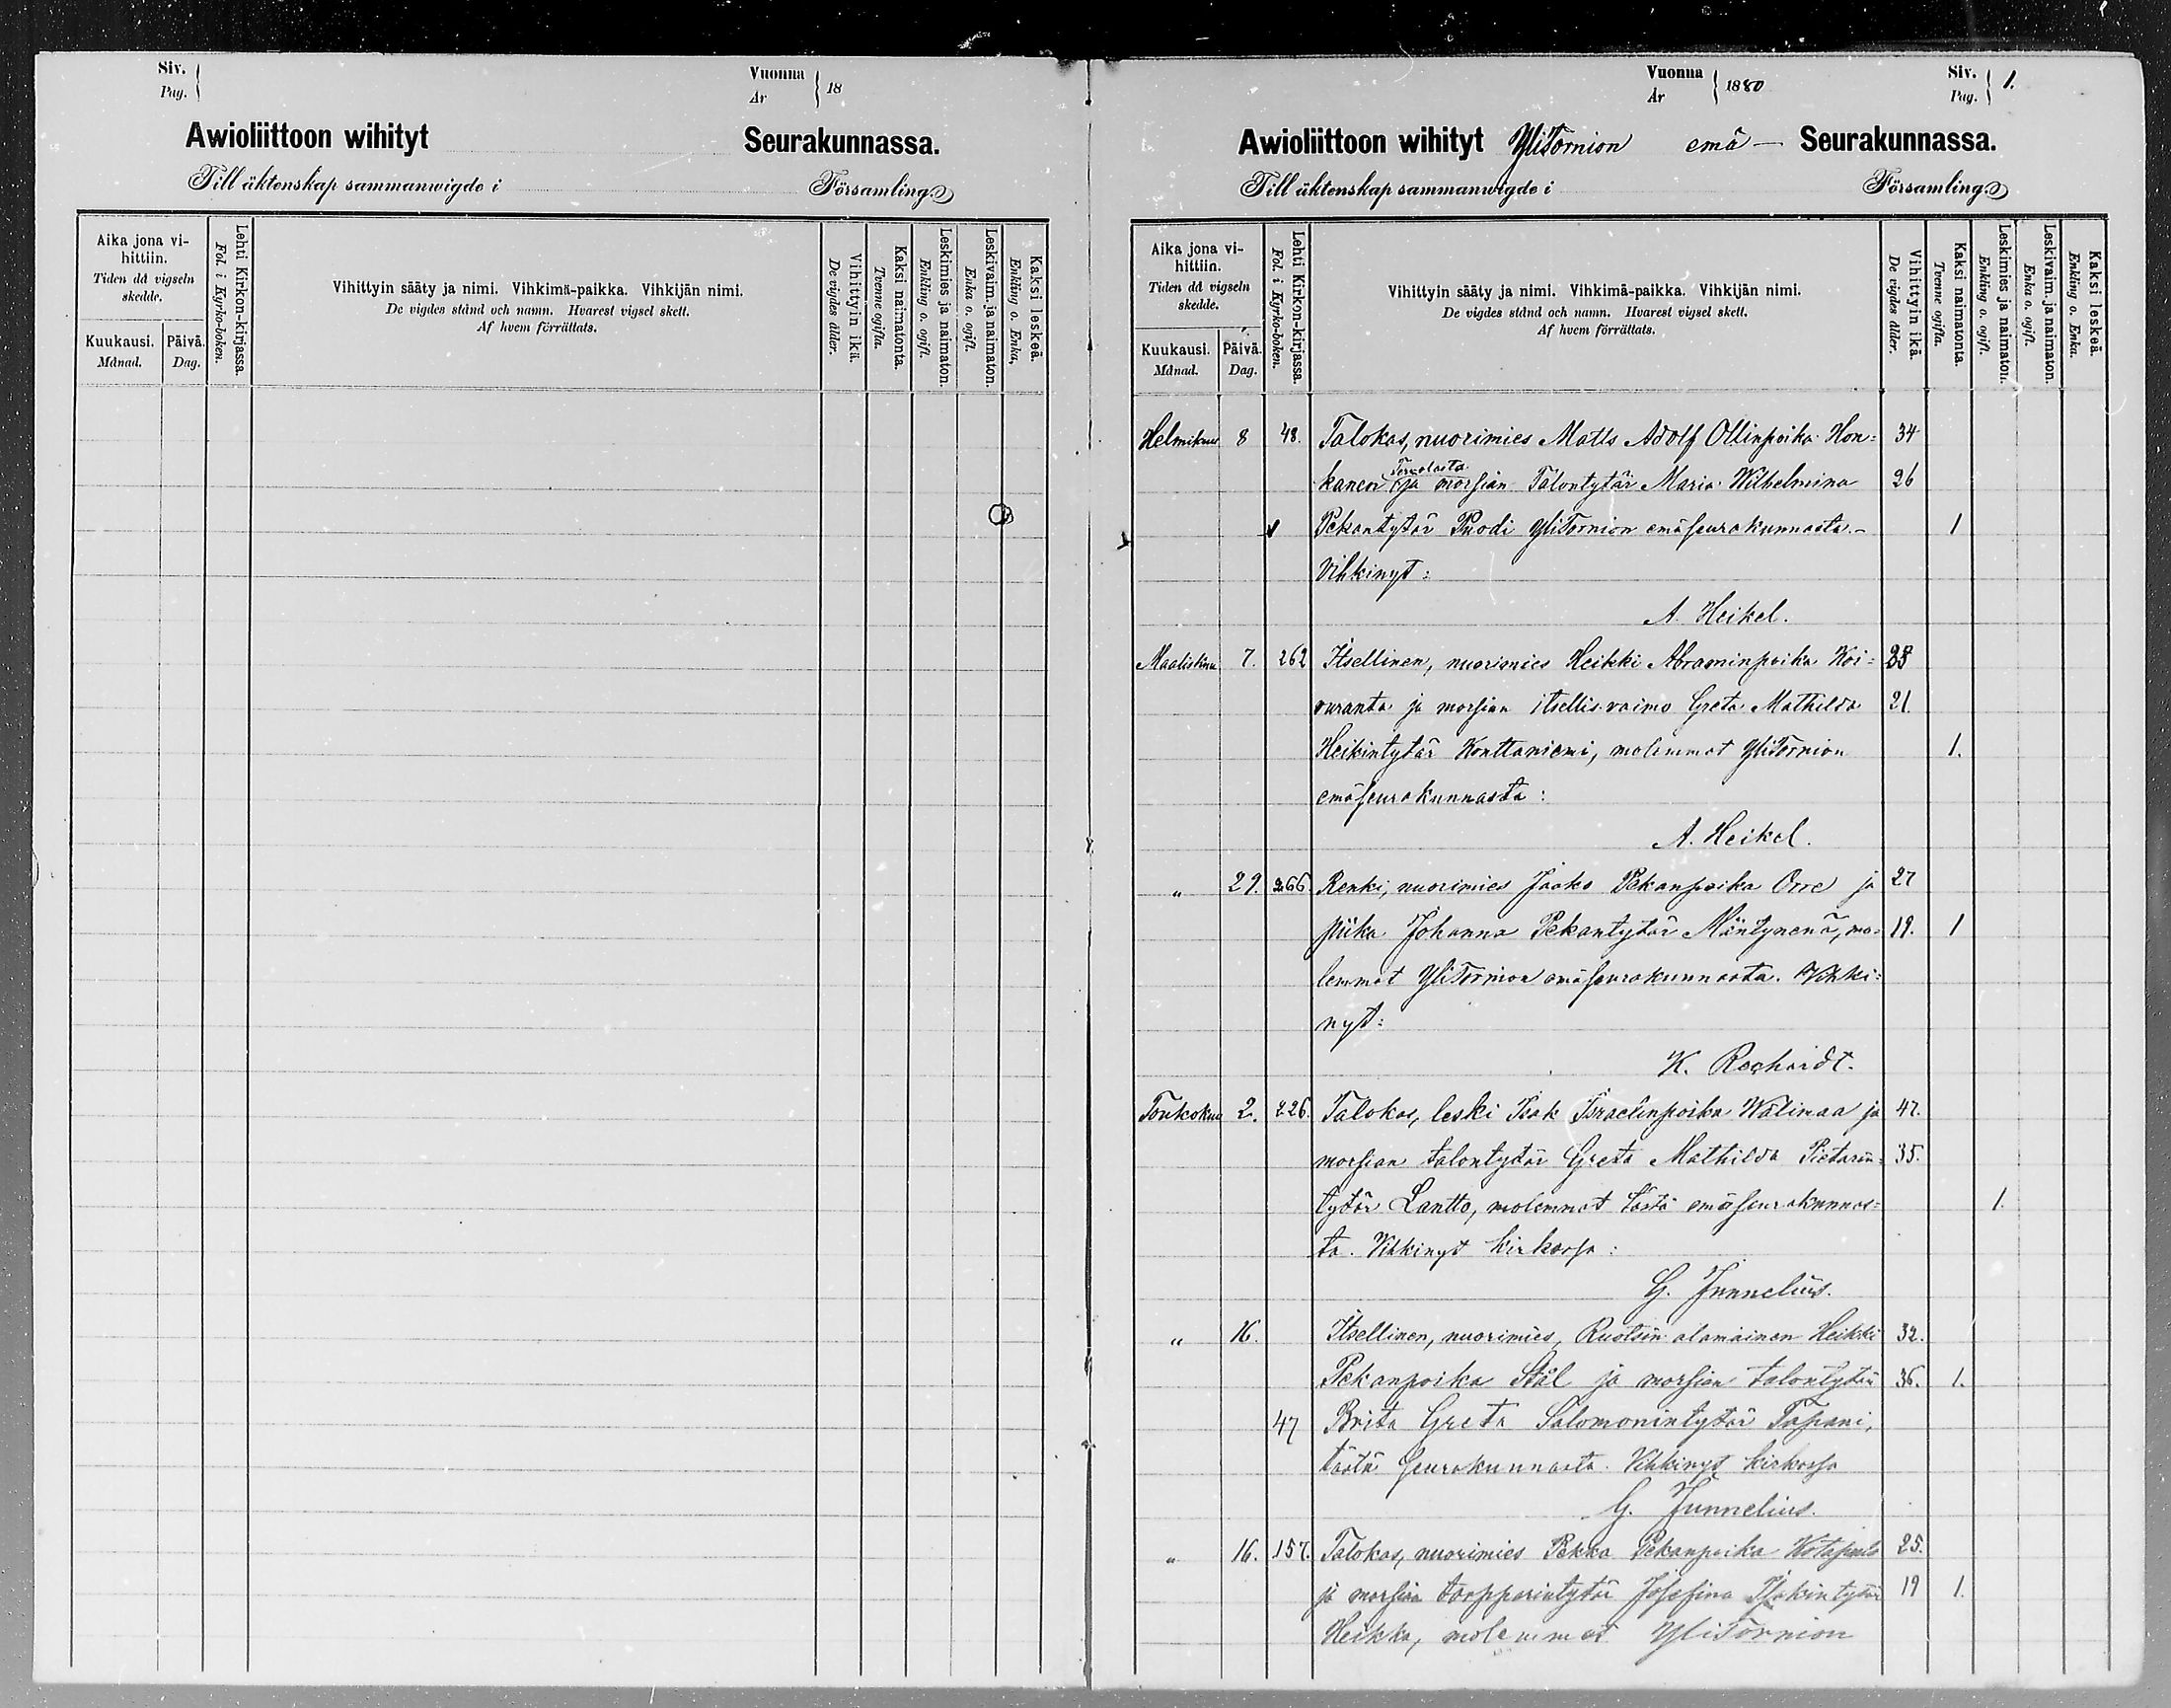 Siv.
Pag.
Vuonna
År
18
Awioliittoon wihityt Seurakunnassa.
Till äktenskap sammanwigde i Församling
Aika jona vi-
hittiin.
Tiden då vigseln
skedde.
Kuukausi.
Månad.
Päivä.
Dag.
Lehti Kirkon-kirjassa.
Fol. i Kyrko-boken.
Vihittyin sääty ja nimi. Vihkimä-paikka. Vihkijän nimi.
De vigdes stånd och namn. Hvarest vigsel skett.
Af hvem förrättats.
Vihittyin ikä.
De vigdes ålder.
Kaksi naimatonta.
Tvenne ogifta.
Leskimies ja naimaton.
Enkling o. ogift.
Leskivaim. ja naimaton.
Enka o. ogift.
Kaksi leskeä.
Enkling o. Enka.
Vuonna
År
1880
Siv.
Pag.
1.
Awioliittoon wihityt YliTornion emä— Seurakunnassa.
Till äktenskap sammanwigde i Församling
Aika jona vi-
hittiin.
Tiden då vigseln
skedde.
Kuukausi.
Månad.
Päivä.
Dag.
Lehti Kirkon-kirjassa.
Fol. i Kyrko-boken.
Vihittyin sääty ja nimi. Vihkimä-paikka. Vihkijän nimi.
De vigdes stånd och namn. Hvarest vigsel skett.
Af hvem förrättats.
Vihittyin ikä.
De vigdes ålder.
Kaksi naimatonta.
Tvenne ogifta.
Leskimies ja naimaton.
Enkling o. ogift.
Leskivaim. ja naimaton.
Enka o. ogift.
Kaksi leskeä.
Enkling o. Enka.
Helmikuu 8 48. Talokas, nuorimies Matts Adolf Ollinpoika Hon= 34
Tervolasta
kanen ja morsian Talontytär Maria Wilhelmina 26
Pekantytär Puodi YliTornion emäseurakunnasta.- 1
Vihkinyt:
A. Heikel.
Maaliskuu 7. 262 Itsellinen, nuorimies Heikki Abraminpoika Koi=
vuranta ja morsian itsellis.vaimo Greta Mathilda 21.
Heikintytär Konttaniemi, molemmat YliTornion 1.
emäseurakunnasta:
A. Heikel.
„ 29. 266 Renki, nuorimies Jaako Pekanpoika Orre ja 27
piika Johanna Pekantytär Mäntynenä, mo= 19. 1
lemmat YliTornion emäseurakunnasta. Vihki=
nyt:
K. Rechardt.
Toukokuu 2. 226. Talokas, leski Isak Israelinpoika Wälimaa ja 47.
morsian talontytär Greta Mathilda Pietarin= 35.
tytär Lantto, molemmat tästä emäseurakunnas= 1.
ta. Vihkinyt kirkossa:
G. Junnelius.
„ 16. Itsellinen, nuorimies, Ruotsin alamainen Heikki 32.
Pekanpoika Stål ja morsian talontytär 36. 1.
47 Brita Greta Salomonintytär Tapani,
tästä seurakunnasta. Vihkinyt kirkossa
G. Junnelius.
„ 16. 157. Talokas, nuorimies Pekka Pekanpoika 25.
ja morsian torpparintytär Josefina Isakintytär 19 1.
Heikka, molemmat YliTornion